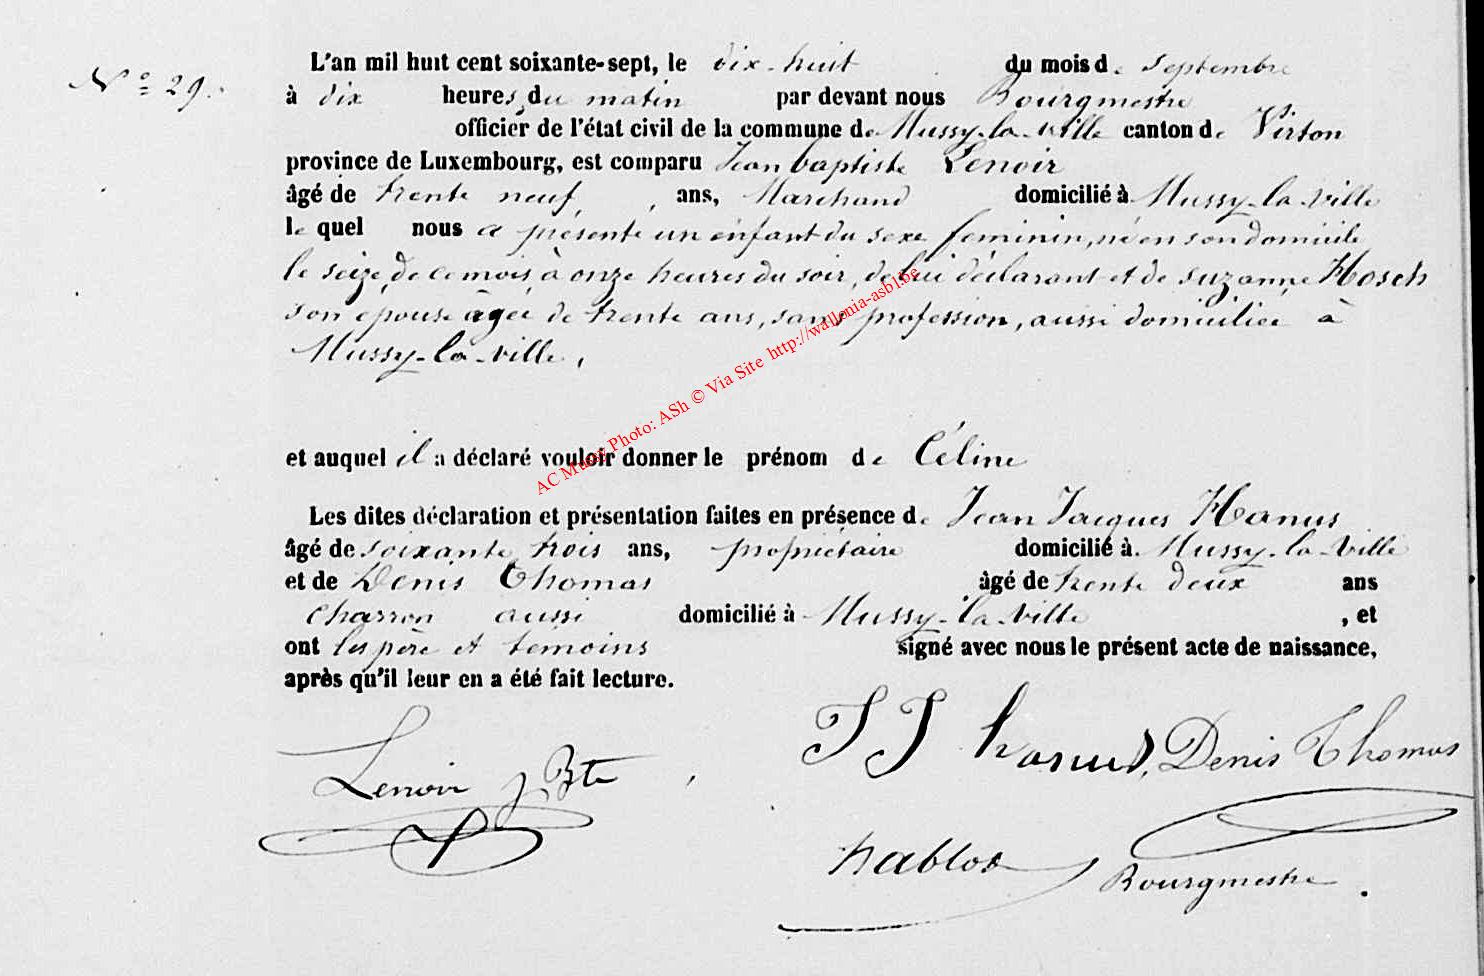 N° 29.
L'an mil huit cent soixante-sept, le dix-huit du mois de septembre
à dix heures du matin par devant nous Bourgmestre
officier de l'état civil de la commune de Mussy-la-ville canton de Virton
province de Luxembourg, est comparu Jean baptiste Lenoir
âgé de trente neuf, ans, Marchand domicilié à Mussy-la-ville
le quel nous a présenté un enfant du sexe féminin, né en son domicile
le seize de ce mois, à onze heures du soir, de lui déclarant et de Suzanne Hosch
son épouse âgée de trente ans, sans profession, aussi domiciliée à
Mussy-la-ville,
AC Mussy Photo: ASh © Via Site http://wallonia-asbl.be
et auquel il a déclaré vouloir donner le prénom de Céline
Les dites déclaration et présentation faites en présence de Jean Jacques Hanus
âgé de soixante trois ans, propriétaire domicilié à Mussy-la-ville
et de Denis Thomas âgé de trente deux ans
charron aussi domicilié à Mussy-la-ville , et
ont les père et témoins signé avec nous le présent acte de naissance,
après qu'il leur en a été fait lecture.
Lenoir J Bte J J hanus, Denis Thomas
Bourgmestre.